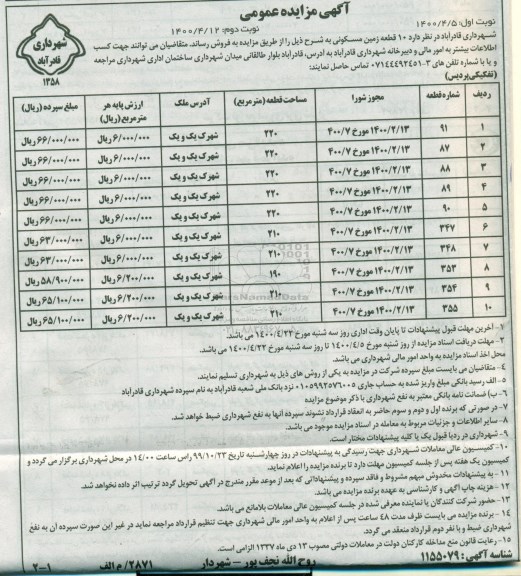 آگهی مزایده عمومی
نوبت اول: ۱۴۰۰/۴/۵
نوبت دوم: ۱۴۰۰/۴/۱۲
شهرداری
قادرآباد
۱۳۵۸
شهرداری قادرآباد در نظر دارد ۱۰ قطعه زمین مسکونی به شرح ذیل را از طریق مزایده به فروش رساند، متقاضیان می توانند جهت کسب
اطلاعات بیشتر به امور مالی و دبیرخانه شهرداری قادرآباد به آدرس، قادرآباد بلوار طالقانی میدان شهرداری ساختمان اداری شهرداری مراجعه
و یا با شماره تلفن های ۳-۰۷۱۴۴۴۹۲۴۵۱ تماس حاصل نمایند:
(تفکیکی پردیس)
ردیف شماره قطعه مجوز شورا مساحت قطعه (مترمربع) آدرس ملک ارزش پایه هر مترمربع (ریال) مبلغ سپرده (ریال)
۱ ۹۱ ۱۴۰۰/۲/۱۳ مورخ ۴۰۰/۷ ۲۲۰ شهرک یک و یک ۶/۰۰۰/۰۰۰ ریال ۶۶/۰۰۰/۰۰۰ ریال
۲ ۸۷ ۱۴۰۰/۲/۱۳ مورخ ۴۰۰/۷ ۲۲۰ شهرک یک و یک ۶/۰۰۰/۰۰۰ ریال ۶۶/۰۰۰/۰۰۰ ریال
۳ ۸۸ ۱۴۰۰/۲/۱۳ مورخ ۴۰۰/۷ ۲۲۰ شهرک یک و یک ۶/۰۰۰/۰۰۰ ریال ۶۶/۰۰۰/۰۰۰ ریال
۴ ۸۹ ۱۴۰۰/۲/۱۳ مورخ ۴۰۰/۷ ۲۲۰ شهرک یک و یک ۶/۰۰۰/۰۰۰ ریال ۶۶/۰۰۰/۰۰۰ ریال
۵ ۹۰ ۱۴۰۰/۲/۱۳ مورخ ۴۰۰/۷ ۲۲۰ شهرک یک و یک ۶/۰۰۰/۰۰۰ ریال ۶۶/۰۰۰/۰۰۰ ریال
۶ ۳۴۷ ۱۴۰۰/۲/۱۳ مورخ ۴۰۰/۷ ۲۱۰ شهرک یک و یک ۶/۰۰۰/۰۰۰ ریال ۶۳/۰۰۰/۰۰۰ ریال
۷ ۳۴۸ ۱۴۰۰/۲/۱۳ مورخ ۴۰۰/۷ ۲۱۰ شهرک یک و یک ۶/۰۰۰/۰۰۰ ریال ۶۳/۰۰۰/۰۰۰ ریال
۸ ۳۵۳ ۱۴۰۰/۲/۱۳ مورخ ۴۰۰/۷ ۱۹۰ شهرک یک و یک ۶/۲۰۰/۰۰۰ ریال ۵۸/۹۰۰/۰۰۰ ریال
۹ ۳۵۴ ۱۴۰۰/۲/۱۳ مورخ ۴۰۰/۷ ۲۱۰ شهرک یک و یک ۶/۲۰۰/۰۰۰ ریال ۶۵/۱۰۰/۰۰۰ ریال
۱۰ ۳۵۵ ۱۴۰۰/۲/۱۳ مورخ ۴۰۰/۷ ۲۱۰ شهرک یک و یک ۶/۲۰۰/۰۰۰ ریال ۶۵/۱۰۰/۰۰۰ ریال
۱- آخرین مهلت قبول پیشنهادات تا پایان وقت اداری روز سه شنبه مورخ ۱۴۰۰/۴/۲۲ می باشد.
۲- مهلت دریافت اسناد مزایده از روز شنبه مورخ ۱۴۰۰/۴/۵ تا روز سه شنبه مورخ ۱۴۰۰/۴/۲۲ می باشد.
محل اخذ اسناد مزایده به واحد امور مالی شهرداری می باشد.
۴- متقاضیان می بایست مبلغ سپرده شرکت در مزایده به یکی از روش های ذیل به شهرداری تسلیم نمایند.
۵- الف رسید بانکی مبلغ واریز شده به حساب جاری ۰۱۰۵۹۹۲۵۷۶۰۰۵ نزد بانک ملی شعبه قادرآباد به نام سپرده شهرداری قادرآباد
۶- ب) ضمانت نامه بانکی معتبر به نفع شهرداری با ذکر موضوع مزایده
۷- در صورتی که برنده اول و دوم و سوم حاضر به انعقاد قرارداد نشوند سپرده آنها به نفع شهرداری ضبط خواهد شد.
۸- سایر اطلاعات و جزئیات مربوط به معامله در اسناد مزایده موجود می باشد.
۹- شهرداری در رد یا قبول یک یا کلیه پیشنهادات مختار است.
۱۰- کمیسیون عالی معاملات شهرداری جهت رسیدگی به پیشنهادات در روز چهارشنبه تاریخ ۹۹/۱۰/۲۳ راس ساعت ۱۴/۰۰ در محل شهرداری برگزار می گردد و
کمیسیون یک هفته پس از جلسه کمیسیون مهلت دارد تا برنده مزایده را اعلام نماید.
۱۱- به پیشنهادات مخدوش مبهم مشروط و فاقد سپرده و پیشنهاداتی که بعد از موعد مقرر مندرج در آگهی تحویل گردد ترتیب اثر داده نخواهد شد.
۱۲- هزینه چاپ آگهی و کارشناسی به عهده برنده مزایده می باشد.
۱۳- حضور شرکت کنندگان یا نماینده معرفی شده در جلسه کمیسیون عالی معاملات بلامانع می باشد.
۱۴- برنده مزایده می بایست ظرف مدت ۴۸ ساعت پس از اعلام به واحد امور مالی شهرداری جهت تنظیم قرارداد مراجعه نماید در غیر این صورت سپرده آن به نفع
شهرداری ضبط و با نفر دوم قرارداد منعقد می گردد.
۱۵- رعایت قانون منع مداخله کارکنان دولت در معاملات دولتی مصوب ۱۳ دی ماه ۱۳۳۷ الزامی است.
شناسه آگهی: ۱۱۵۵۰۷۹
روح الله نجف پور - شهردار
۲۸۷۱/ م الف
۲-۱